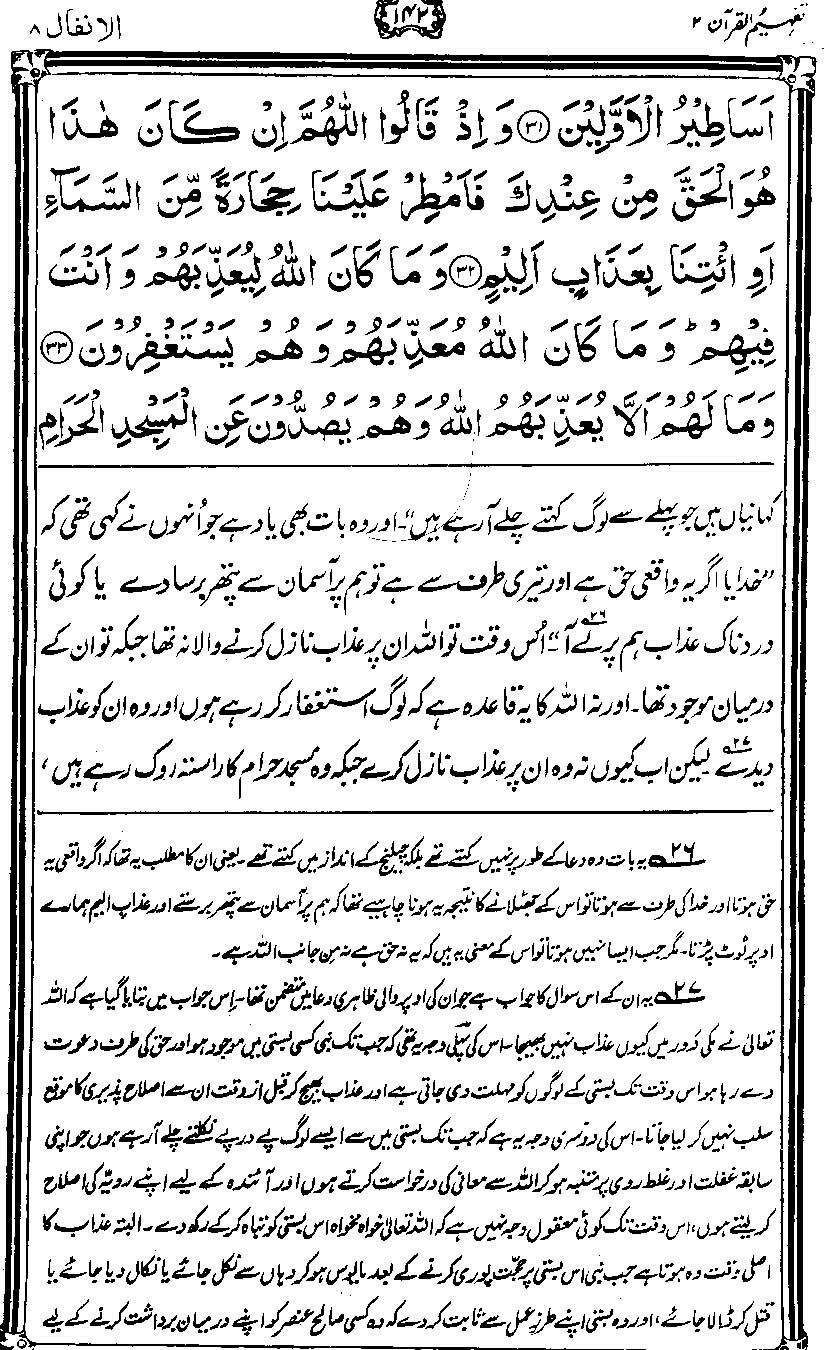 تفہیم القرآن ۲
۱۴۲
الانفال ۸
اَسَاطِيْرُ الْاَوَّلِيْنَ ﴿۳۱﴾ وَ اِذْ قَالُوا اللّٰهُمَّ اِنْ كَانَ هٰذَا
هُوَ الْحَقَّ مِنْ عِنْدِكَ فَاَمْطِرْ عَلَيْنَا حِجَارَةً مِّنَ السَّمَآءِ
اَوِ ائْتِنَا بِعَذَابٍ اَلِيْمٍ ﴿۳۲﴾ وَ مَا كَانَ اللّٰهُ لِيُعَذِّبَهُمْ وَ اَنْتَ
فِيْهِمْ ؕ وَ مَا كَانَ اللّٰهُ مُعَذِّبَهُمْ وَ هُمْ يَسْتَغْفِرُوْنَ ﴿۳۳﴾
وَ مَا لَهُمْ اَلَّا يُعَذِّبَهُمُ اللّٰهُ وَ هُمْ يَصُدُّوْنَ عَنِ الْمَسْجِدِ الْحَرَامِ
کہانیاں ہیں جو پہلے سے لوگ کہتے چلے آرہے ہیں“۔ اور وہ بات بھی یاد ہے جو اُنہوں نے کہی تھی کہ
”خدایا اگر یہ واقعی حق ہے اور تیری طرف سے ہے تو ہم پر آسمان سے پتھر برسا دے یا کوئی
دردناک عذاب ہم پر لے آ“۔۲۶ اُس وقت تو اللہ ان پر عذاب نازل کرنے والا نہ تھا جبکہ تو ان کے
درمیان موجود تھا۔ اور نہ اللہ کا یہ قاعدہ ہے کہ لوگ استغفار کر رہے ہوں اور وہ ان کو عذاب
دیدے۲۷ لیکن اب کیوں نہ وہ ان پر عذاب نازل کرے جبکہ وہ مسجد حرام کا راستہ روک رہے ہیں،
۲۶ یہ بات وہ دعا کے طور پر نہیں کہتے تھے بلکہ چیلنج کے انداز میں کہتے تھے۔ یعنی ان کا مطلب یہ تھا کہ اگر واقعی یہ
حق ہوتا اور خدا کی طرف سے ہوتا تو اس کے جھٹلانے کا نتیجہ یہ ہونا چاہیے تھا کہ ہم پر آسمان سے پتھر برستے اور عذاب الیم ہمارے
اوپر ٹوٹ پڑتا۔ مگر جب ایسا نہیں ہوتا تو اس کے معنی یہ ہیں کہ یہ نہ حق ہے نہ من جانب اللہ ہے۔
۲۷ یہ ان کے اس سوال کا جواب ہے جو ان کی اوپر والی ظاہری دعا میں متضمن تھا۔ اِس جواب میں بتایا گیا ہے کہ اللہ
تعالیٰ نے مکی دَور میں کیوں عذاب نہیں بھیجا۔ اس کی پہلی وجہ یہ تھی کہ جب تک نبی کسی بستی میں موجود ہو اور حق کی طرف دعوت
دے رہا ہو اس وقت تک بستی کے لوگوں کو مہلت دی جاتی ہے اور عذاب بھیج کر قبل از وقت ان سے اصلاح پذیری کا موقع
سلب نہیں کر لیا جاتا۔ اس کی دوسری وجہ یہ ہے کہ جب تک بستی میں سے ایسے لوگ پے درپے نکلتے چلے آرہے ہوں جو اپنی
سابقہ غفلت اور غلط روی پر متنبہ ہو کر اللہ سے معافی کی درخواست کرتے ہوں اور آئندہ کے لیے اپنے رویّہ کی اصلاح
کر لیتے ہوں، اس وقت تک کوئی معقول وجہ نہیں ہے کہ اللہ تعالیٰ خواہ مخواہ اس بستی کو تباہ کر کے رکھ دے۔ البتہ عذاب کا
اصلی وقت وہ ہوتا ہے جب نبی اس بستی پر حجت پوری کرنے کے بعد مایوس ہو کر وہاں سے نکل جائے یا نکال دیا جائے یا
قتل کر ڈالا جائے، اور وہ بستی اپنے طرزِ عمل سے ثابت کر دے کہ وہ کسی صالح عنصر کو اپنے درمیان برداشت کرنے کے لیے